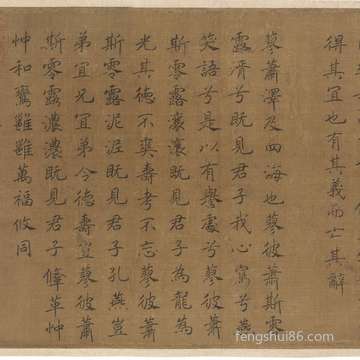 得其宜也有其義而亡其辭
蓼蕭澤及四海也蓼彼蕭斯零
露湑兮既見君子我心寫兮燕
笑語兮是以有譽處兮蓼彼蕭
斯零露瀼瀼既見君子為龍為
光其德不爽壽考不忘蓼彼蕭
斯零露泥泥既見君子孔燕豈
弟宜兄宜弟令德壽豈蓼彼蕭
斯零露濃濃既見君子鞗革忡
忡和鸞雝雝萬福攸同
fengshui86.com